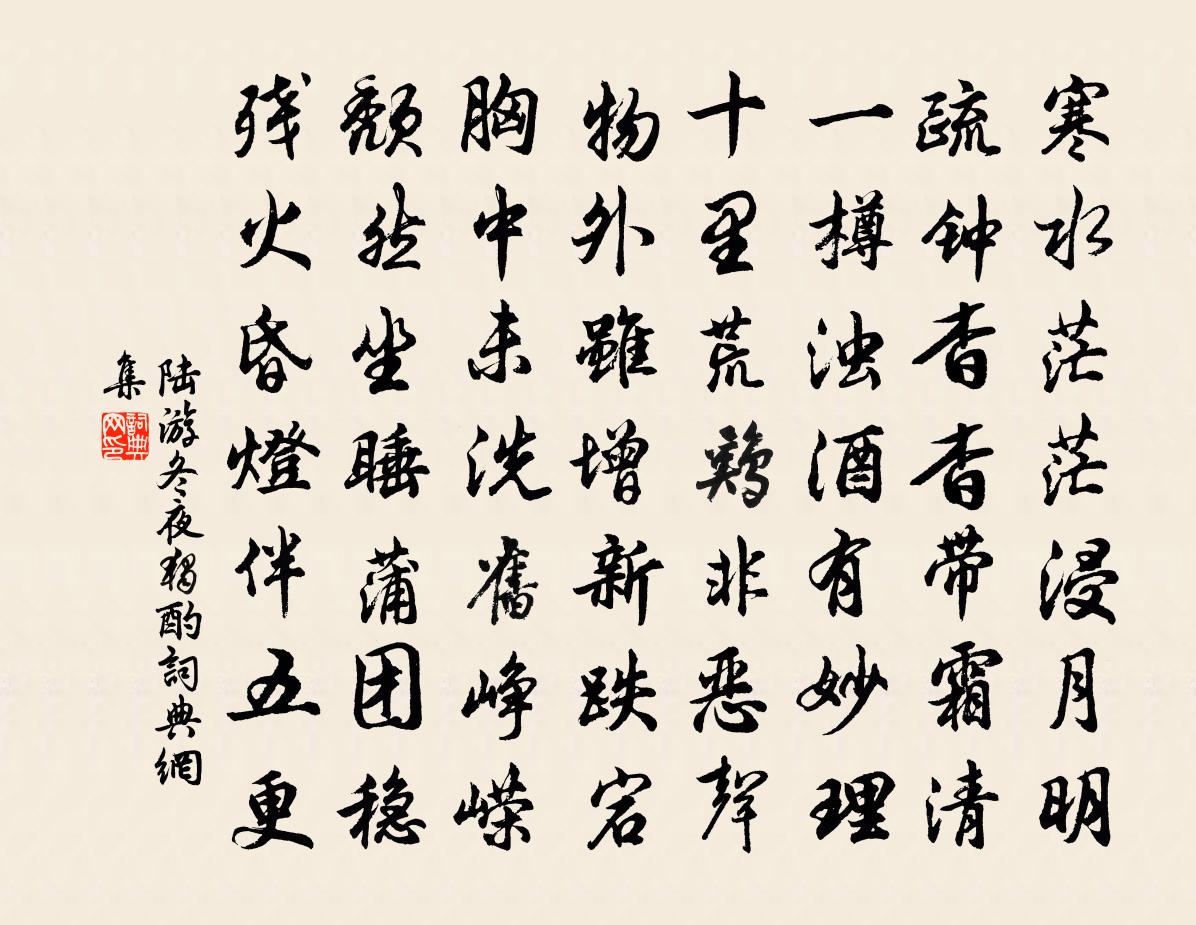 寒水茫茫浸月明
疏钟杳杳带霜清
一樽浊酒有妙理
十里荒鶏非恶聲
物外雖增新跌宕
胸中未洗舊峥嵘
颓然坐睡蒲团稳
残火昏燈伴五更
陆游冬夜独酌詞典網
集
詞典
网印